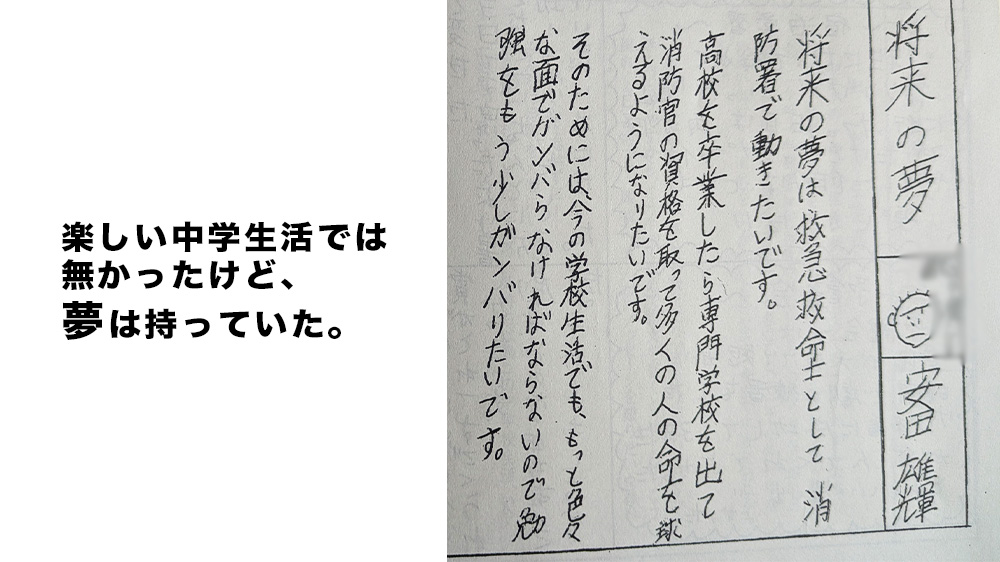 楽しい中学生活では
無かったけど、
夢は持っていた。
将来の夢
安田 雄輝
将来の夢は救急救命士として 消
防署で動きたいです。
高校を卒業したら専門学校を出て
消防官の資格を取って多くの人の命を球
えるようになりたいです。
そのためには、今の学校生活でも、もっと色々
な面でガンバらなければならないので 勉
強をもう少しガンバりたいです。